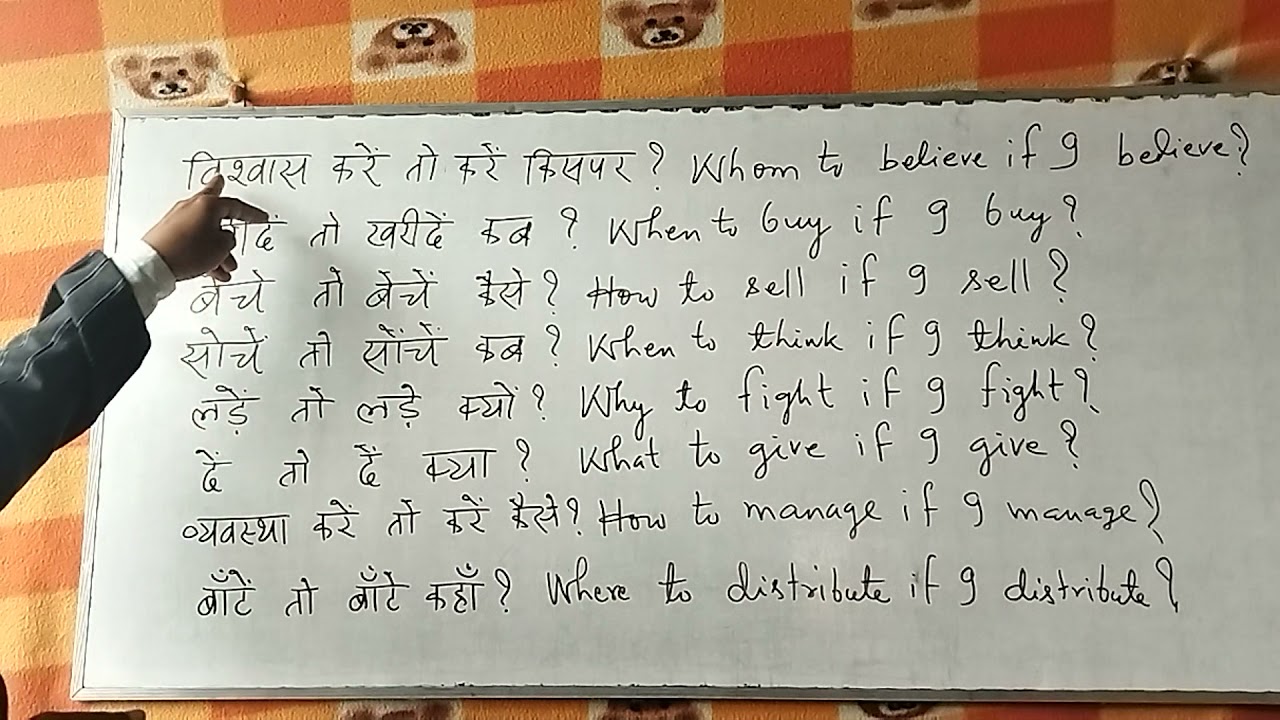 विश्वास करें तो करें किसपर? Whom to believe if I believe?
तो खरीदें कब? When to buy if I buy?
बेचें तो बेचें कैसे? How to sell if I sell?
सोचें तो सोंचें कब? When to think if I think?
लड़ें तो लड़े क्यों? Why to fight if I fight?
दें तो दें क्या? What to give if I give?
व्यवस्था करें तो करें कैसे? How to manage if I manage?
बाँटें तो बाँटे कहाँ? Where to distribute if I distribute?